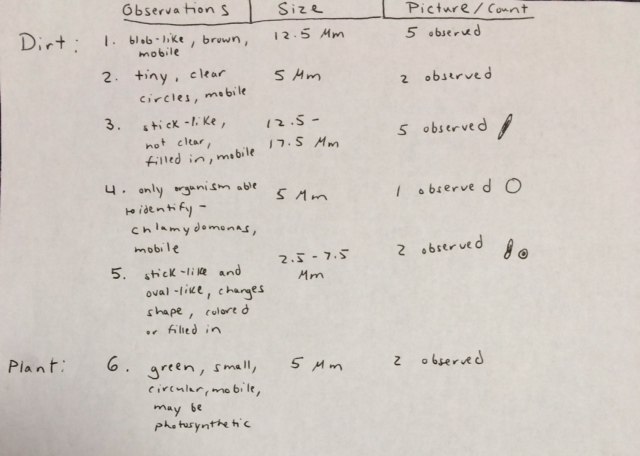 Observations | Size | Picture/Count
Dirt: 1. blob-like, brown, mobile 12.5 Mm 5 observed
2. tiny, clear circles, mobile 5 Mm 2 observed
3. stick-like, not clear, filled in, mobile 12.5 - 17.5 Mm 5 observed
4. only organism able to identify - chlamydomonas, mobile 5 Mm 1 observed
5. stick-like and oval-like, changes shape, colored or filled in 2.5 - 7.5 Mm 2 observed
Plant: 6. green, small, circular, mobile, may be photosynthetic 5 Mm 2 observed